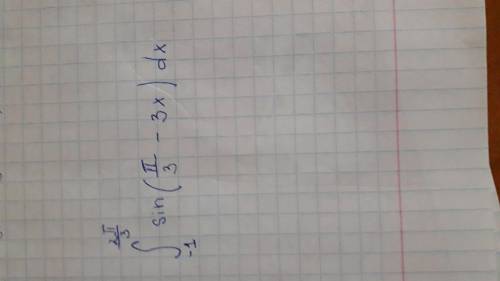 ∫_{-1}^{2π/3} sin(π/3 - 3x) dx